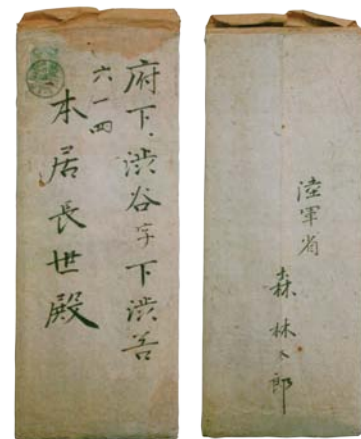 府下、渋谷字下渋谷
六一四
本居長世殿
陸軍省
森林太郎